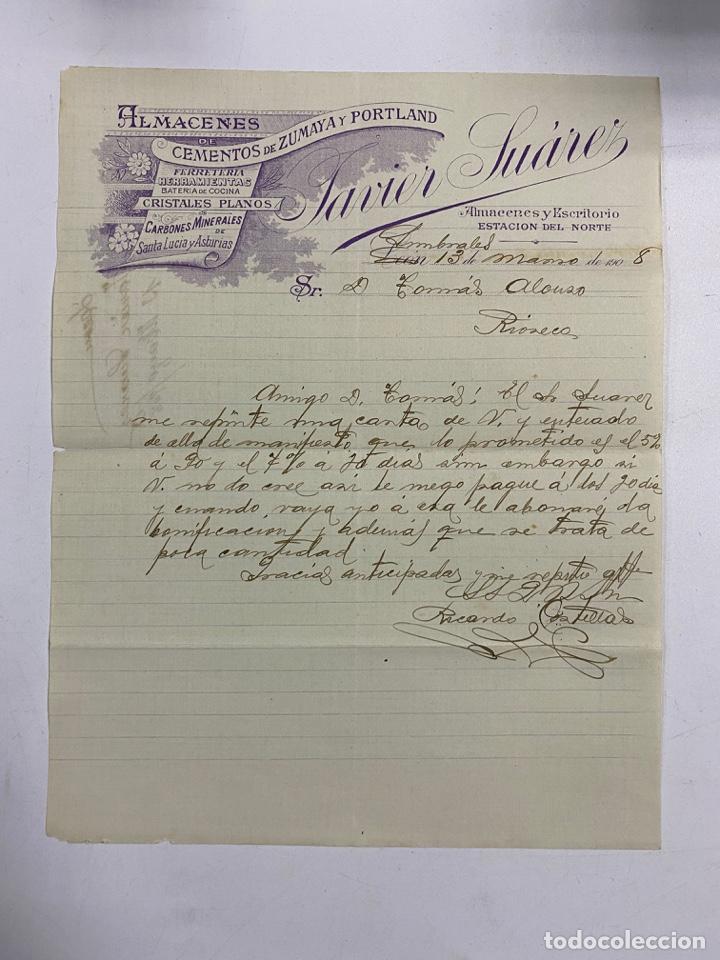 ALMACENES
DE
CEMENTOS DE ZUMAYA Y PORTLAND
FERRETERIA
HERRAMIENTAS
BATERIA DE COCINA
CRISTALES PLANOS
CARBONES MINERALES
DE
Santa Lucia y Asturias
Javier Suárez
Almacenes y Escritorio
ESTACION DEL NORTE
13 de Marzo de 1908
Sr. D Tomás Alonso
Rioseco
Amigo D. Tomás: El Sr Suarez
me repite una carta de V. y enterado
de ella de manifiesto, que lo prometido es el 5%
á 90 y el 7% á 30 dias sim embargo si
V. no lo cree asi le ruego pague á los 30 dias
y cuando vaya yo á esa le abonare la
bonificacion y además que se trata de
poca cantidad.
Gracias anticipadas y me repito
Ricardo
todocoleccion
todocoleccion.net